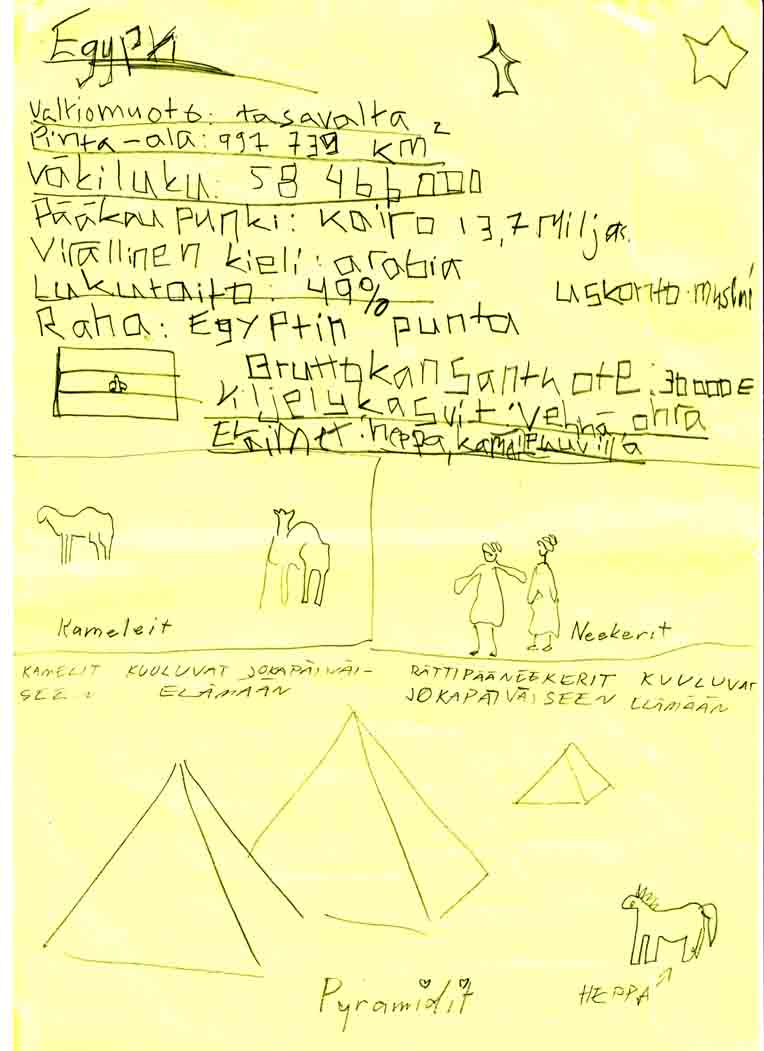 Egypti
Valtiomuoto: tasavalta
Pinta-ala: 997 739 km²
Väkiluku: 58 466 000
Pääkaupunki: Kairo 13,7 milj as.
Virallinen kieli: arabia
Lukutaito: 49%
uskonto: muslmi
Raha: Egyptin punta
Bruttokansantuote: 30000€
Viljelykasvit: Vehnä, ohra
Eläimet: heppa, kameli puuvilla
Kameleit
Neekerit
KAMELIT KUULUVAT JOKAPÄIVÄI-
SEEN ELÄMÄÄN
RÄTTIPÄÄNEEKERIT KUULUVAT
JOKAPÄIVÄISEEN ELÄMÄÄN
Pyramidit
HEPPA